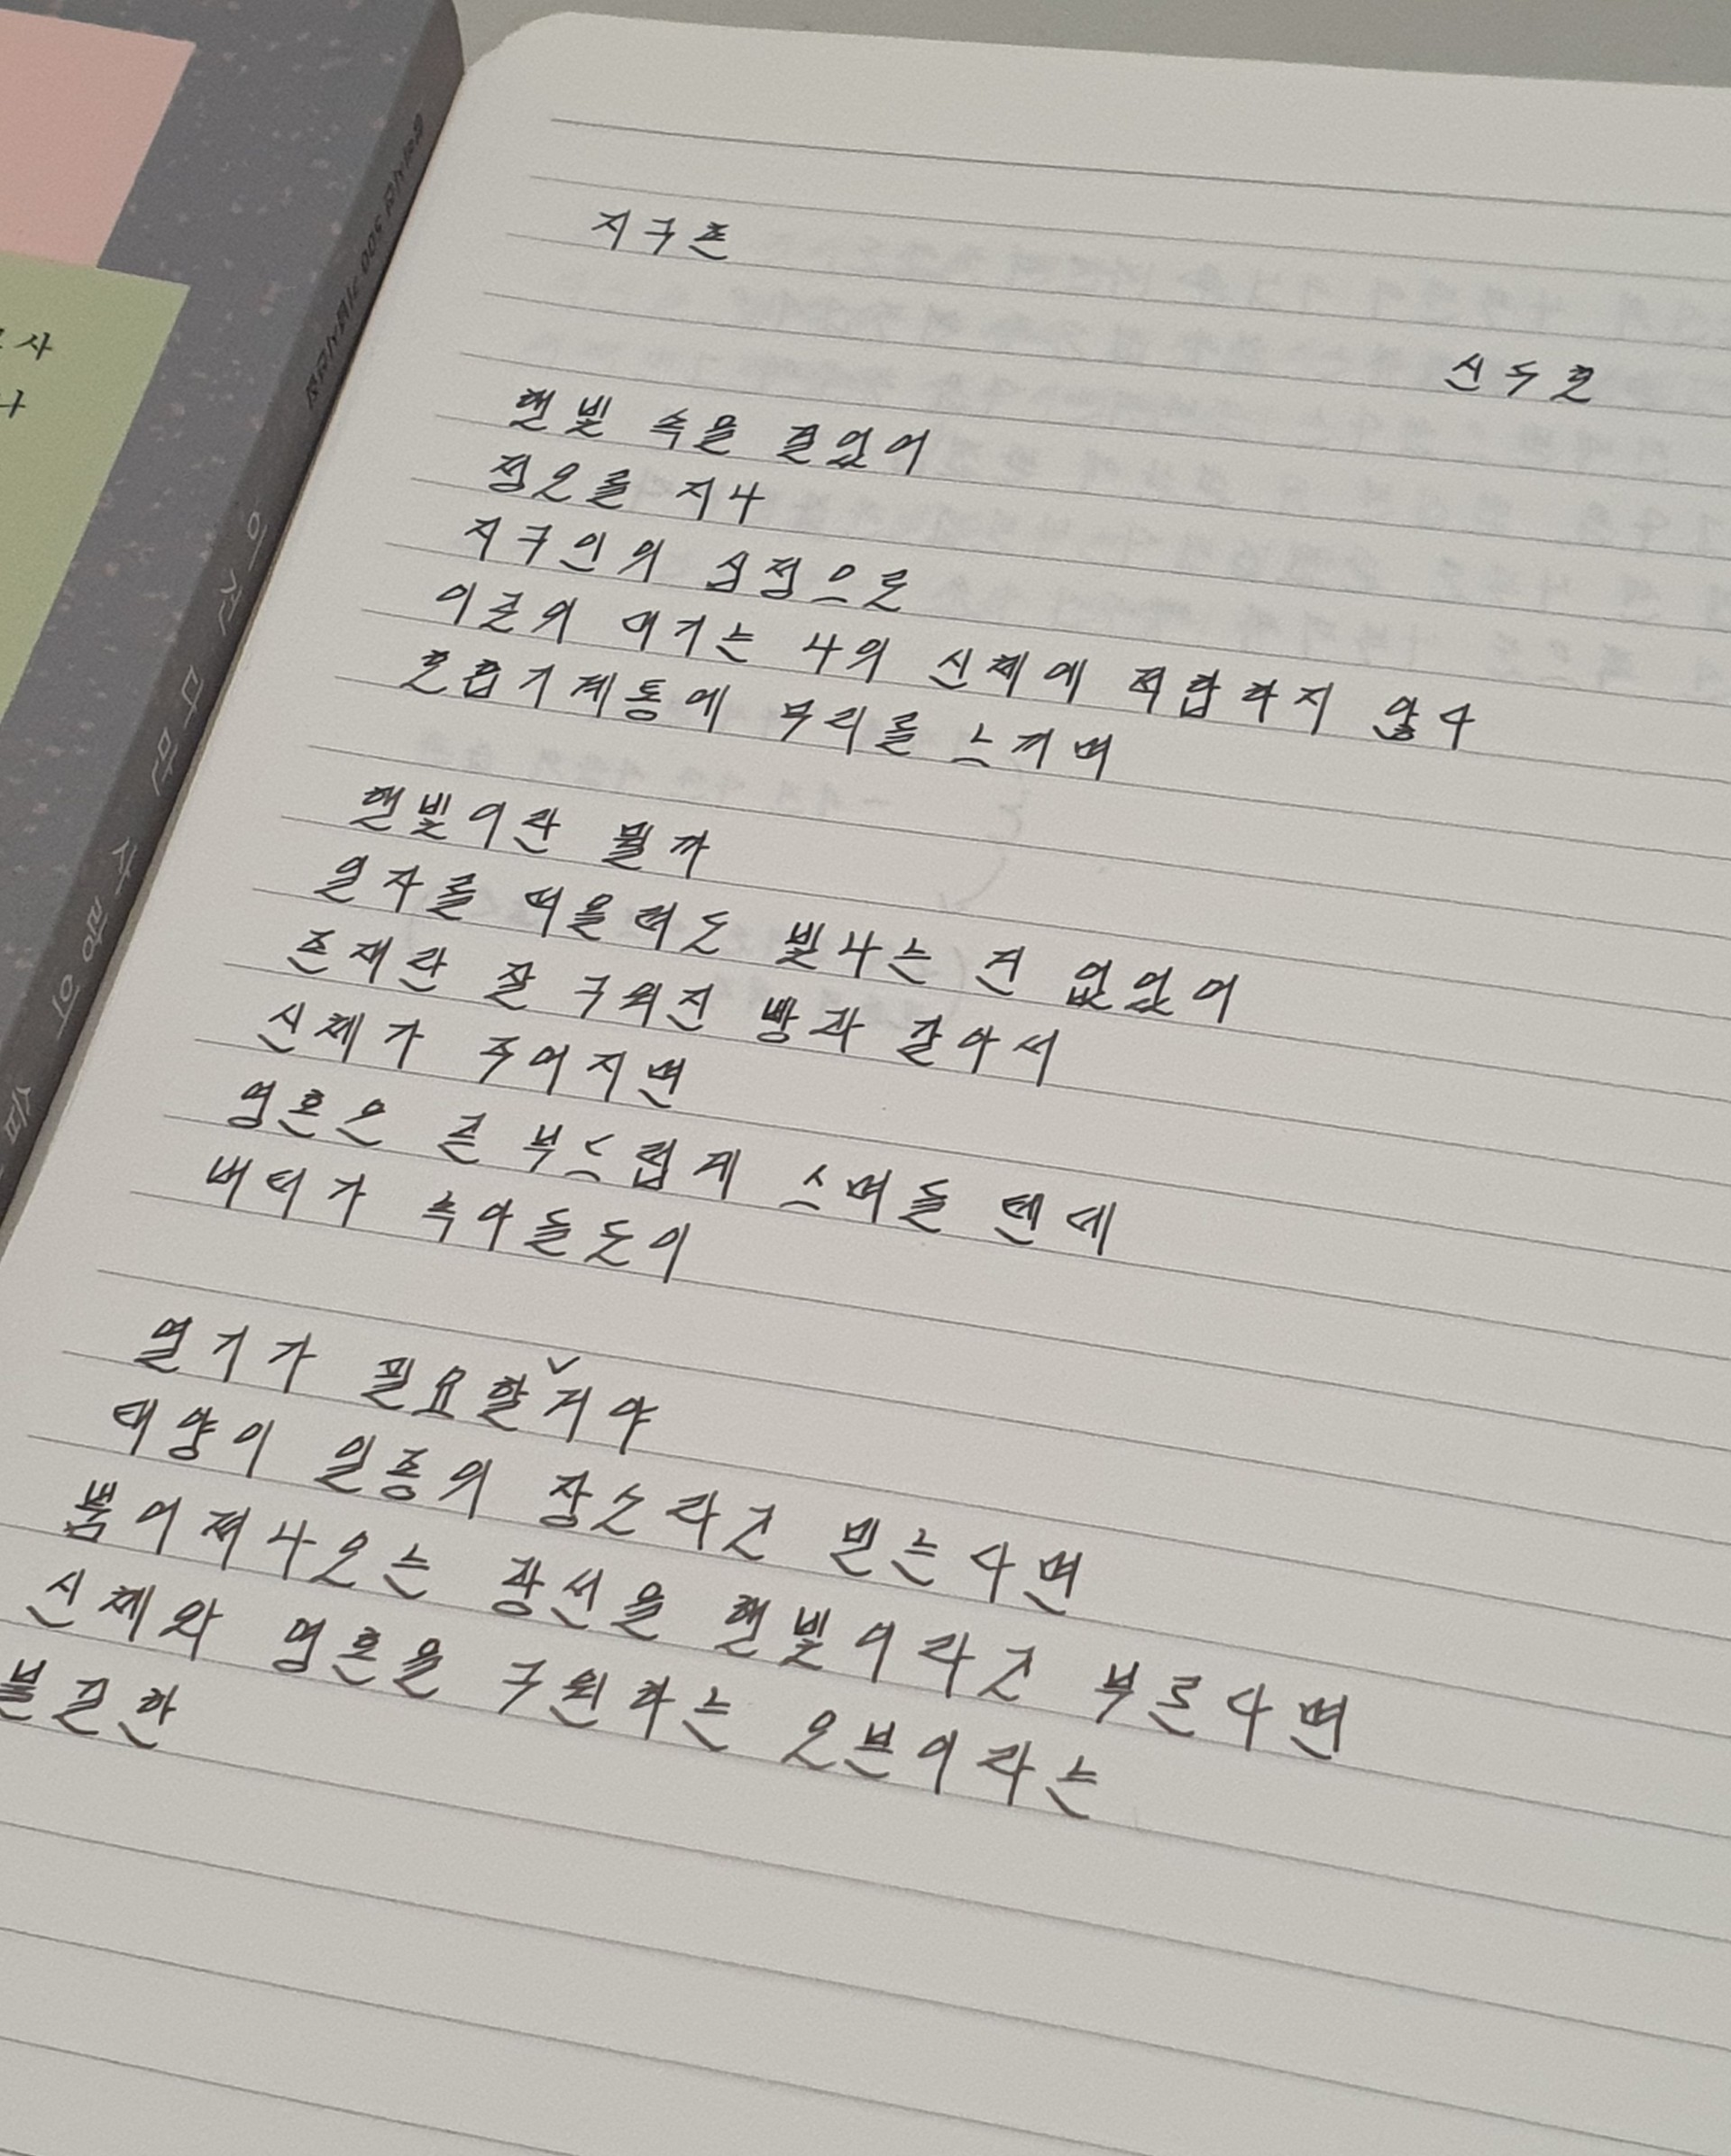 지구촌
신두호
햇빛 속을 걸었어
정오를 지나
지구인의 심정으로
이곳의 대기는 나의 신체에 적합하지 않다
호흡기계통에 무리를 느끼며
햇빛이란 뭘까
일자를 떠올려도 빛나는 건 없었어
존재란 잘 구워진 빵과 같아서
신체가 주어지면
영혼은 곧 부드럽게 스며들 텐데
버터가 녹아들듯이
열기가 필요할∨거야
태양이 일종의 장소라고 믿는다면
뿜어져나오는 광선을 햇빛이라고 부른다면
신체와 영혼을 구원하는 오븐이라는
불길한
창비시선 500 기념시선집
이건 다만 사랑의 습